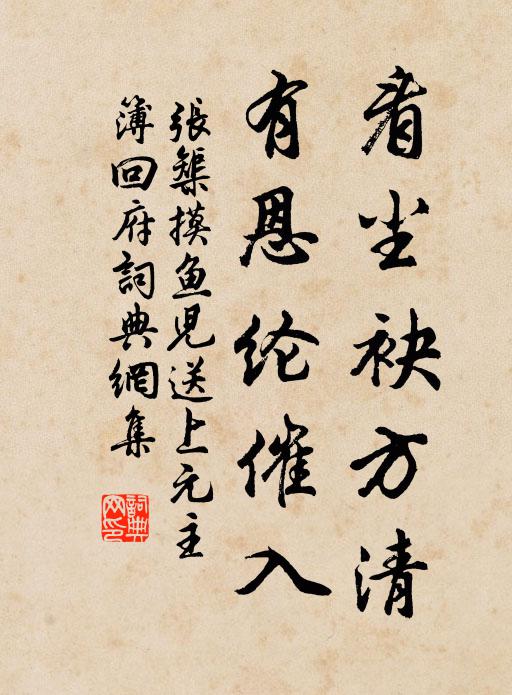 看尘袂方清
有恩纶催入
張榘摸鱼児送上元主
簿回府詞典網集
詞典
网印